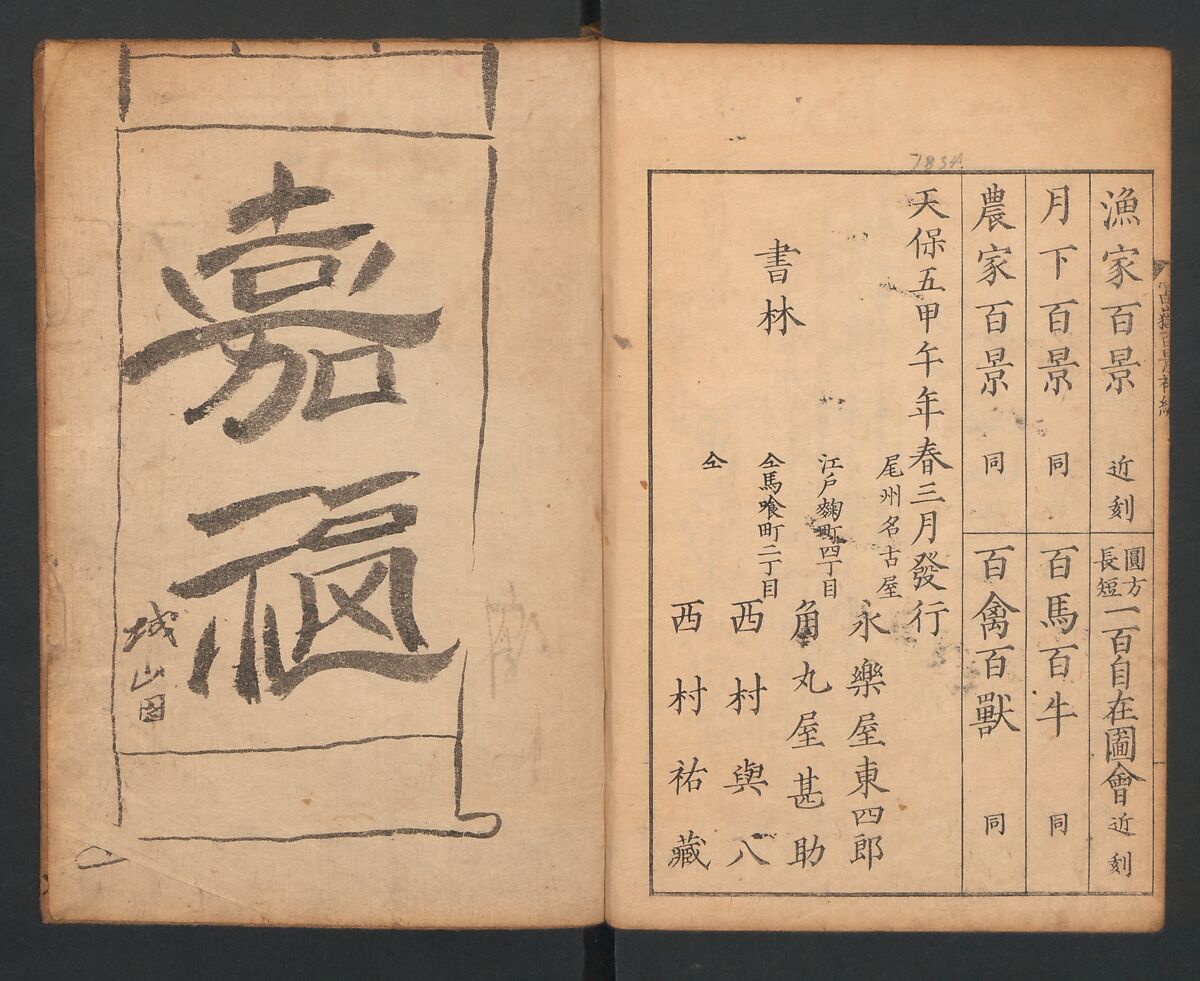 漁家百景 近刻
圓方長短一百自在圖會 近刻
月下百景 同
百馬百牛 同
農家百景 同
百禽百獸 同
天保五甲午年春三月發行
書林
尾州名古屋 永樂屋東四郎
江戸麴町四丁目 角丸屋甚助
仝馬喰町二丁目 西村與八
仝 西村祐藏
1834
嘉福